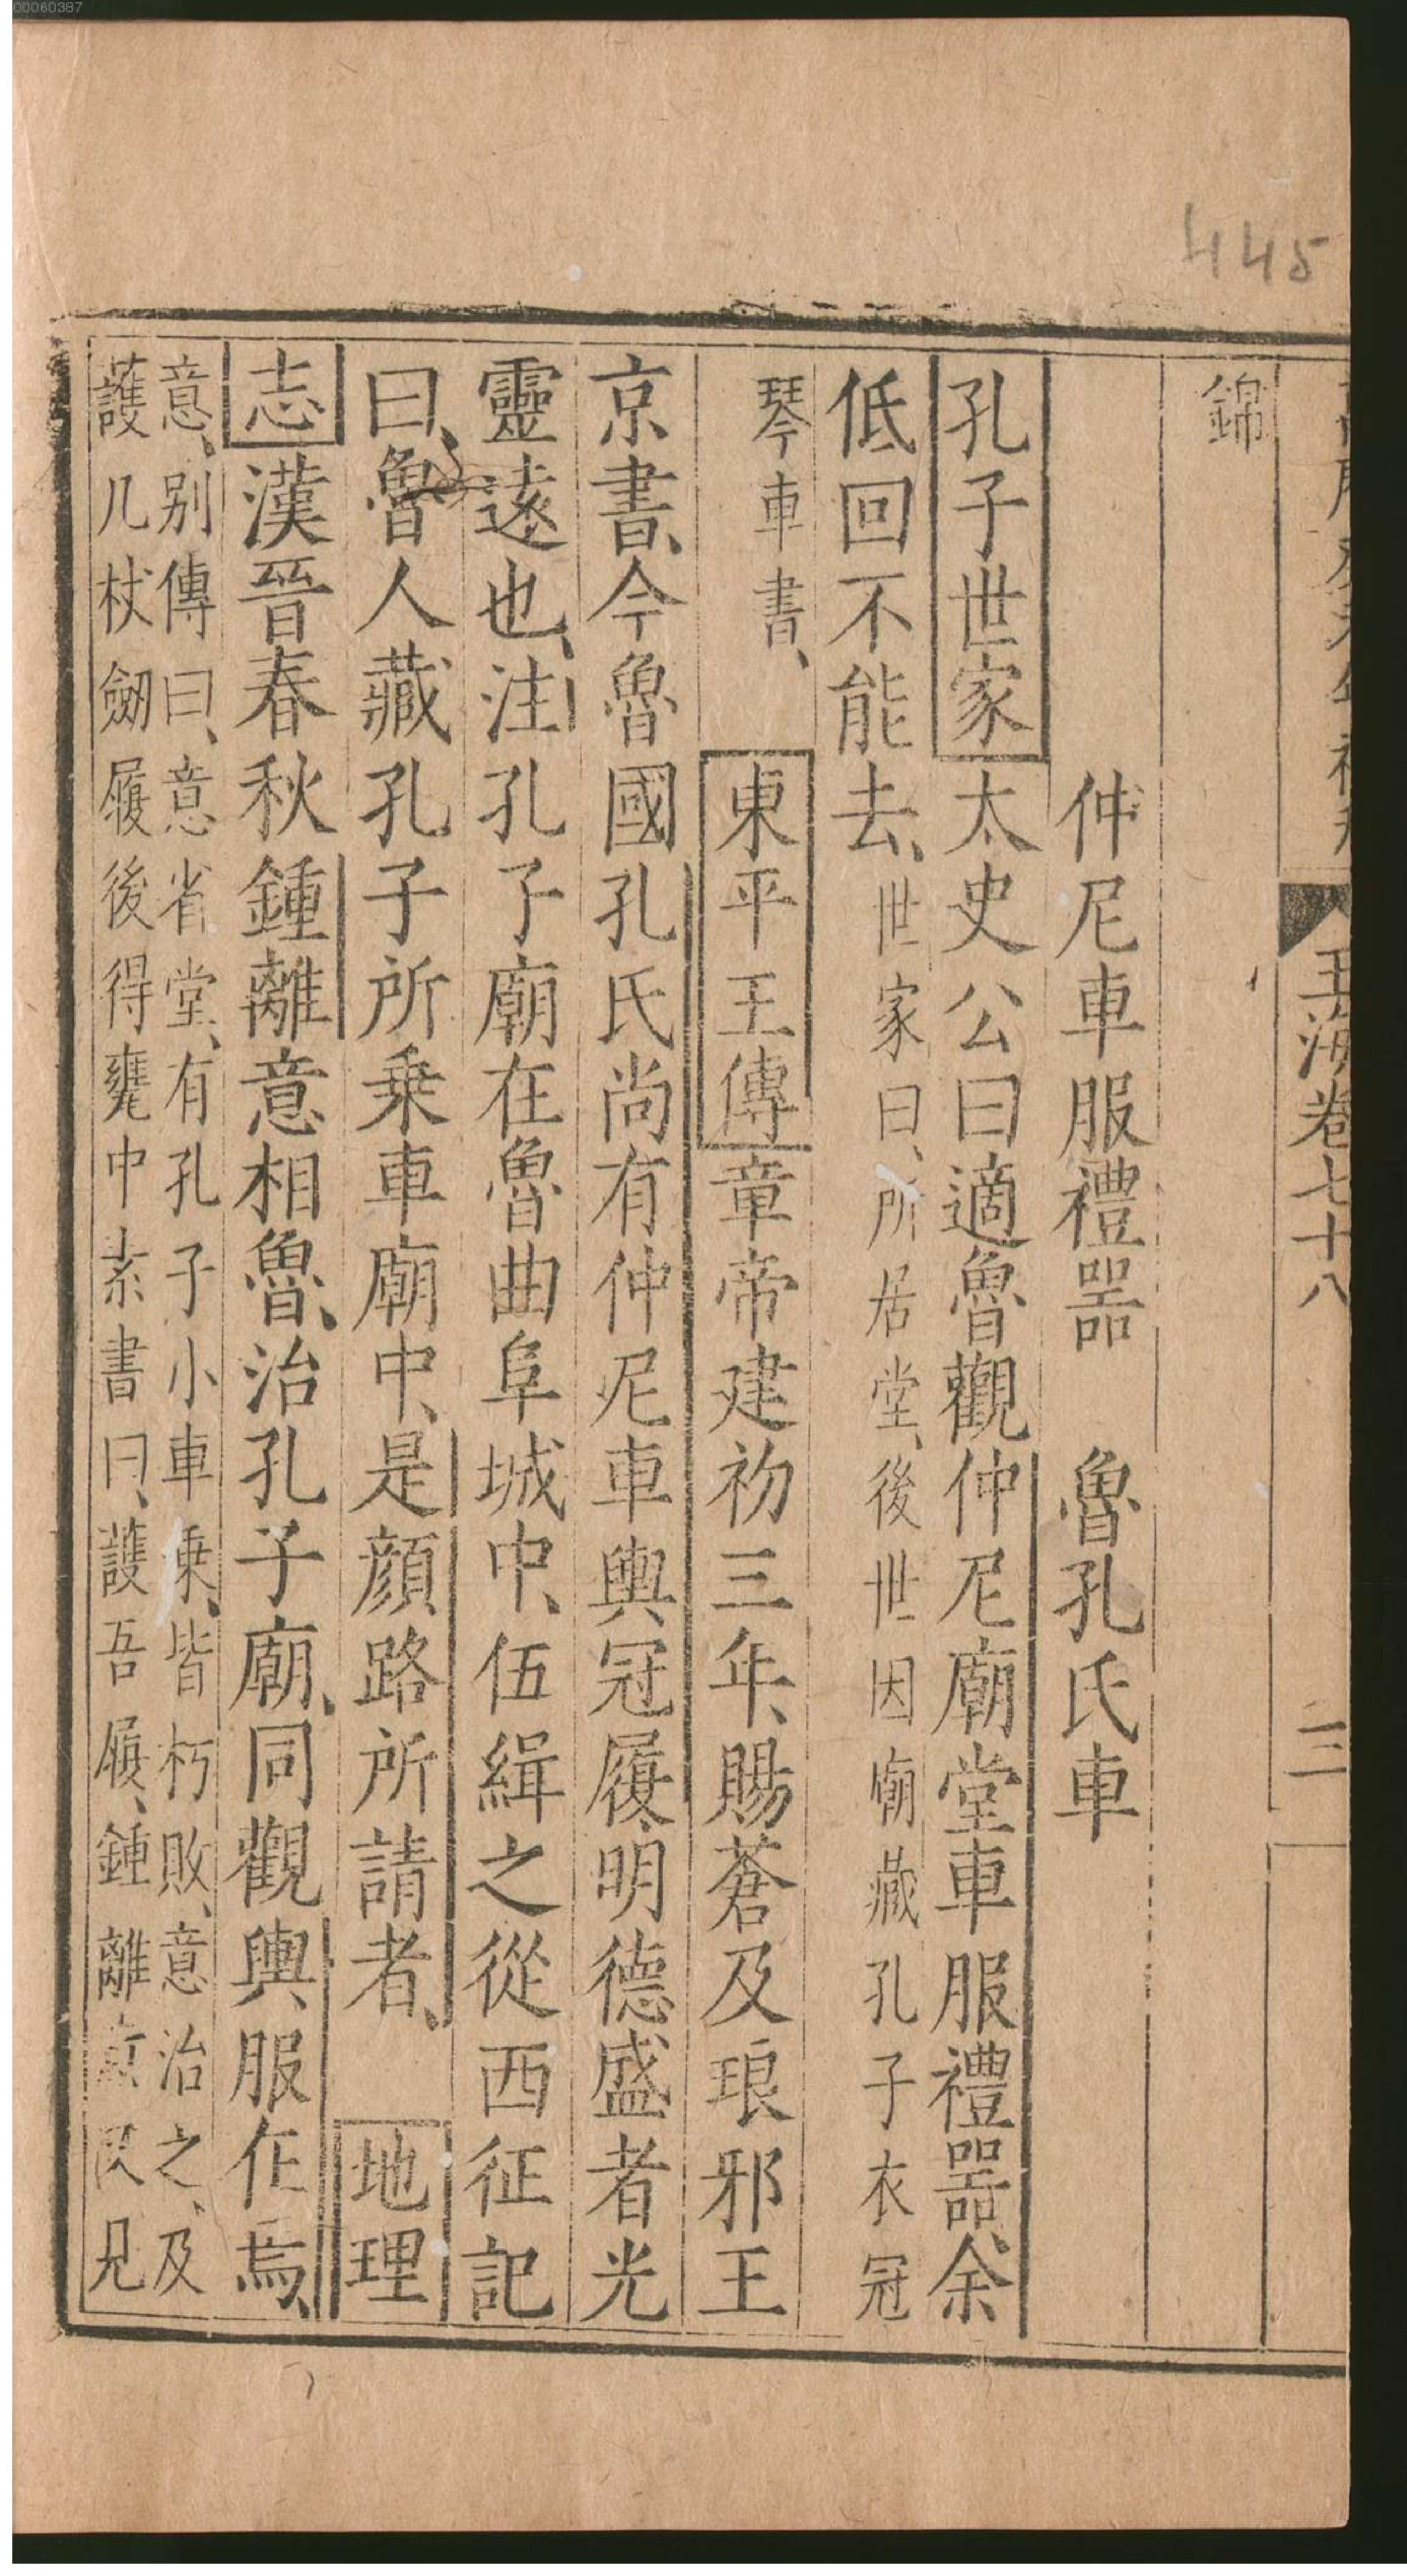 00060387
445
玉海卷七十八
三
錦
仲尼車服禮器 魯孔氏車
孔子世家太史公曰適魯觀仲尼廟堂車服禮器、余
低回不能去、世家曰、所居堂、後世因廟藏孔子衣冠
琴車書、 東平王傳章帝建初三年、賜蒼及琅邪王
京書、今魯國孔氏尚有仲尼車輿冠履、明德盛者光
靈遠也、注孔子廟在魯曲阜城中、伍緝之從西征記
曰、魯人藏孔子所乗車廟中、是顔路所請者、 地理
志漢晉春秋鍾離意相魯、治孔子廟、同觀輿服在焉、
意、別傳曰、意省堂、有孔子小車乗、皆朽敗、意治之、及
護几杖劒履後得甕中素書曰、護吾履、鍾離意又見